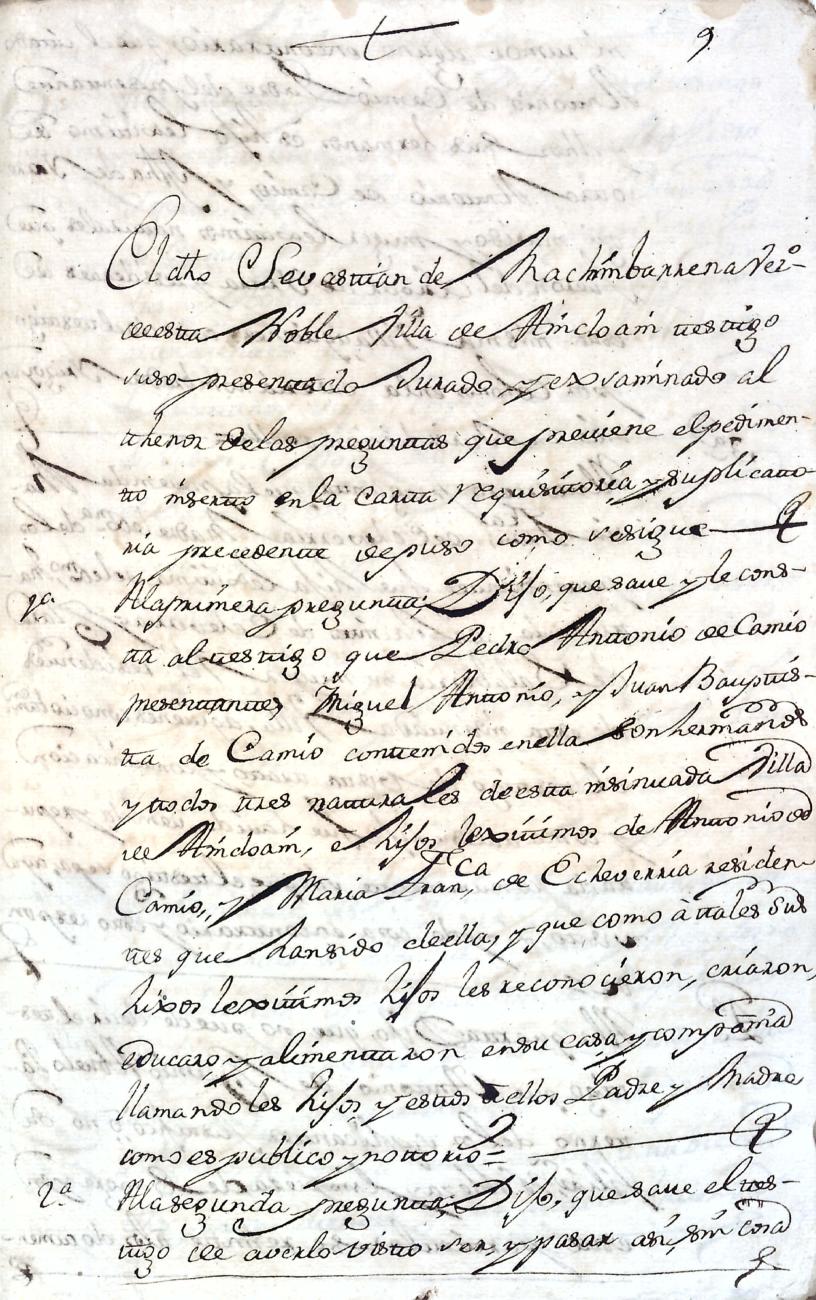 9
El dho Sevasttian de Machinbarrena Vez.º
de estta Noble Villa de Aindoain testtigo
suso presenttado Jurado, y exsaminado al
thenor de las pregunttas que previene el pedimen-
tto inserto en la cartta requisittoria y suplicatto-
ria precedentte depuso como se sigue
1ª A la primera preguntta, Dijo, que save y le cons-
tta al testtigo que Pedro Anttonio de Camio
presenttante, Miguel Anttonio, y Juan Bauptis-
tta de Camio conttenidos en ella son hermanos
y ttodos ttres natturales de estta insinuada Villa
de Aindoain, e hijos lexittimos de Anttonio de
Camio, y Maria Franca de Echeverria residen-
ttes que han sido de ella, y que como à ttales sus
hixos lexittimos hijos les reconocieron, criaron,
educaro, y alimenttaron en su casa y compania
llamandoles hijos y esttos a ellos Padre y Madre
como es publico y nottorio =
2ª A la segunda preguntta, Dijo, que save el tes-
tigo de averlo visto ser, y pasar asi, sin cosa